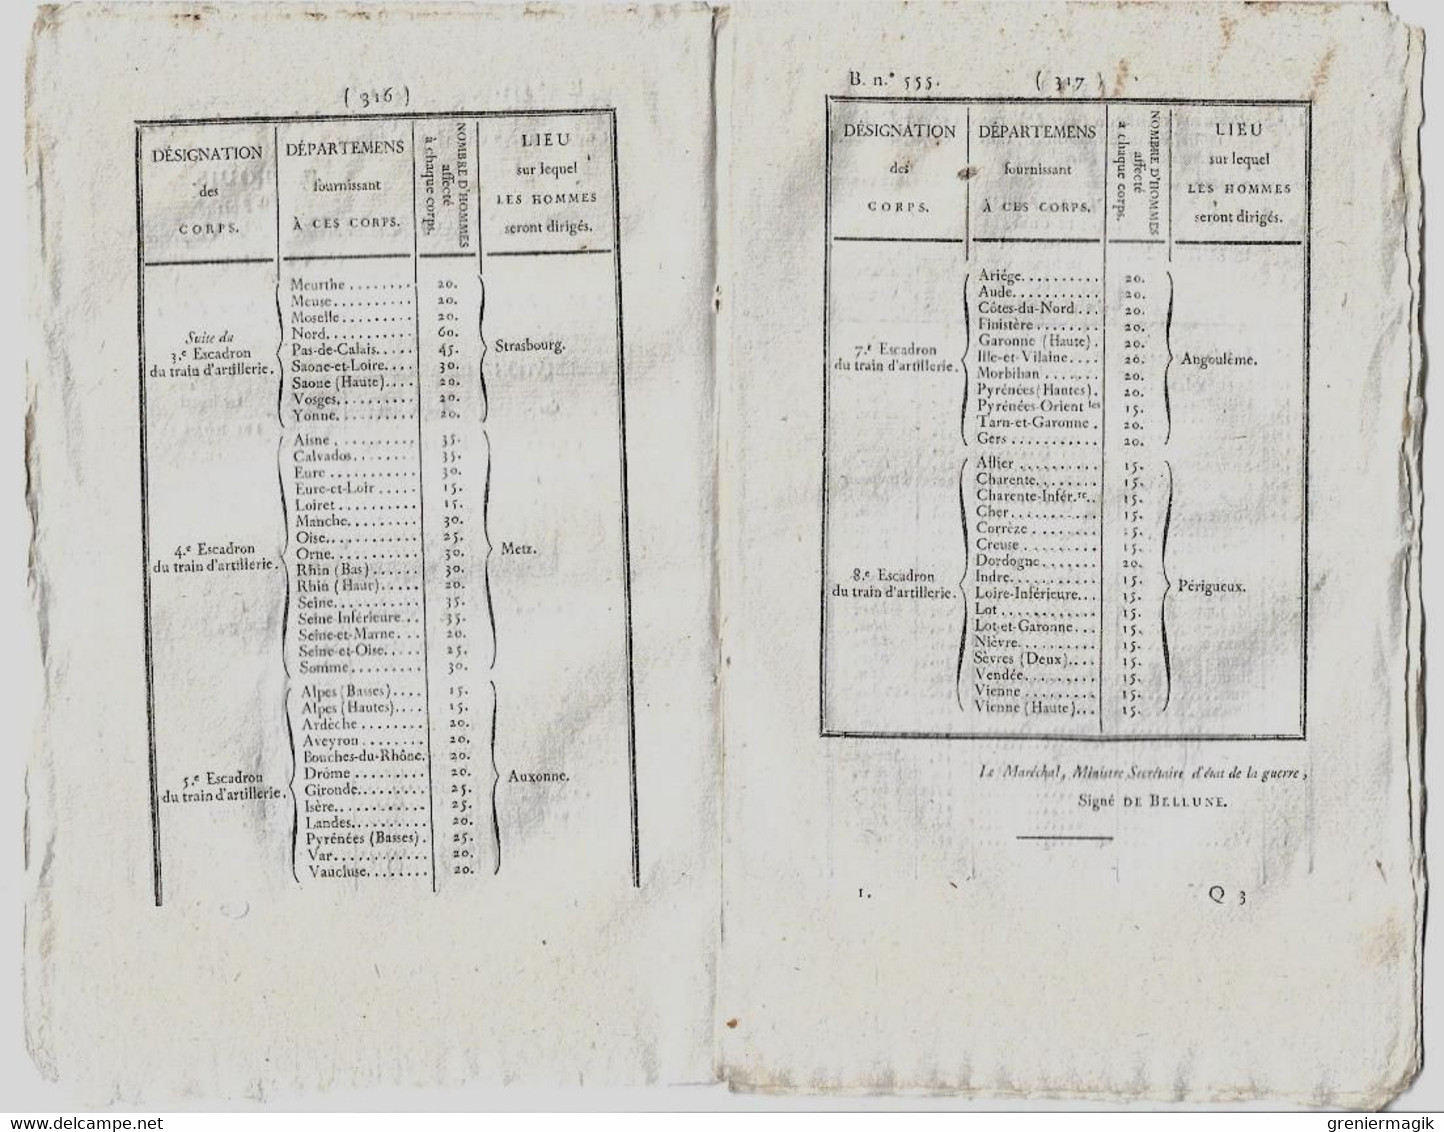 ( 316 )
DÉSIGNATION
des
CORPS.
DÉPARTEMENS
fournissant
À CES CORPS.
NOMBRE D'HOMMES
affecté
à chaque corps.
LIEU
sur lequel
LES HOMMES
seront dirigés.
Suite du
3.e Escadron
du train d'artillerie.
Meurthe ........ 20.
Meuse.......... 20.
Moselle ......... 20.
Nord........... 60.
Pas-de-Calais..... 45.
Saone-et-Loire.... 30.
Saone (Haute).... 20.
Vosges.......... 20.
Yonne.......... 20.
Strasbourg.
4.e Escadron
du train d'artillerie.
Aisne .......... 35.
Calvados........ 35.
Eure ........... 30.
Eure-et-Loir ..... 15.
Loiret .......... 15.
Manche......... 30.
Oise............ 25.
Orne........... 30.
Rhin (Bas) ...... 30.
Rhin (Haut)..... 20.
Seine........... 35.
Seine Inférieure... 35.
Seine-et-Marne... 20.
Seine-et-Oise..... 25.
Somme......... 30.
Metz.
5.e Escadron
du train d'artillerie.
Alpes (Basses).... 15.
Alpes (Hautes).... 15.
Ardèche ........ 20.
Aveyron ........ 20.
Bouches-du-Rhône. 20.
Drôme ......... 20.
Gironde......... 25.
Isère............ 25.
Landes.......... 20.
Pyrénées (Basses). 25.
Var............ 20.
Vaucluse........ 20.
Auxonne.
B. n.° 555. ( 317 )
DÉSIGNATION
des
CORPS.
DÉPARTEMENS
fournissant
À CES CORPS.
NOMBRE D'HOMMES
affecté
à chaque corps.
LIEU
sur lequel
LES HOMMES
seront dirigés.
7.e Escadron
du train d'artillerie.
Ariége.......... 20.
Aude........... 20.
Côtes-du-Nord... 20.
Finistère ........ 20.
Garonne (Haute). 20.
Ille-et-Vilaine.... 20.
Morbihan ....... 20.
Pyrénées (Hautes). 20.
Pyrénées-Orient les 15.
Tarn-et-Garonne . 20.
Gers ........... 20.
Angoulême.
8.e Escadron
du train d'artillerie.
Allier .......... 15.
Charente........ 15.
Charente-Infér.re.. 15.
Cher........... 15.
Corrèze ........ 15.
Creuse ......... 15.
Dordogne....... 20.
Indre........... 15.
Loire-Inférieure... 15.
Lot ............ 15.
Lot-et-Garonne... 15.
Nièvre.......... 15.
Sèvres (Deux).... 15.
Vendée......... 15.
Vienne ......... 15.
Vienne (Haute)... 15.
Périgueux.
Le Maréchal, Ministre Secrétaire d'état de la guerre,
Signé DE BELLUNE.
1. Q 3
www.delcampe.net
greniermagik